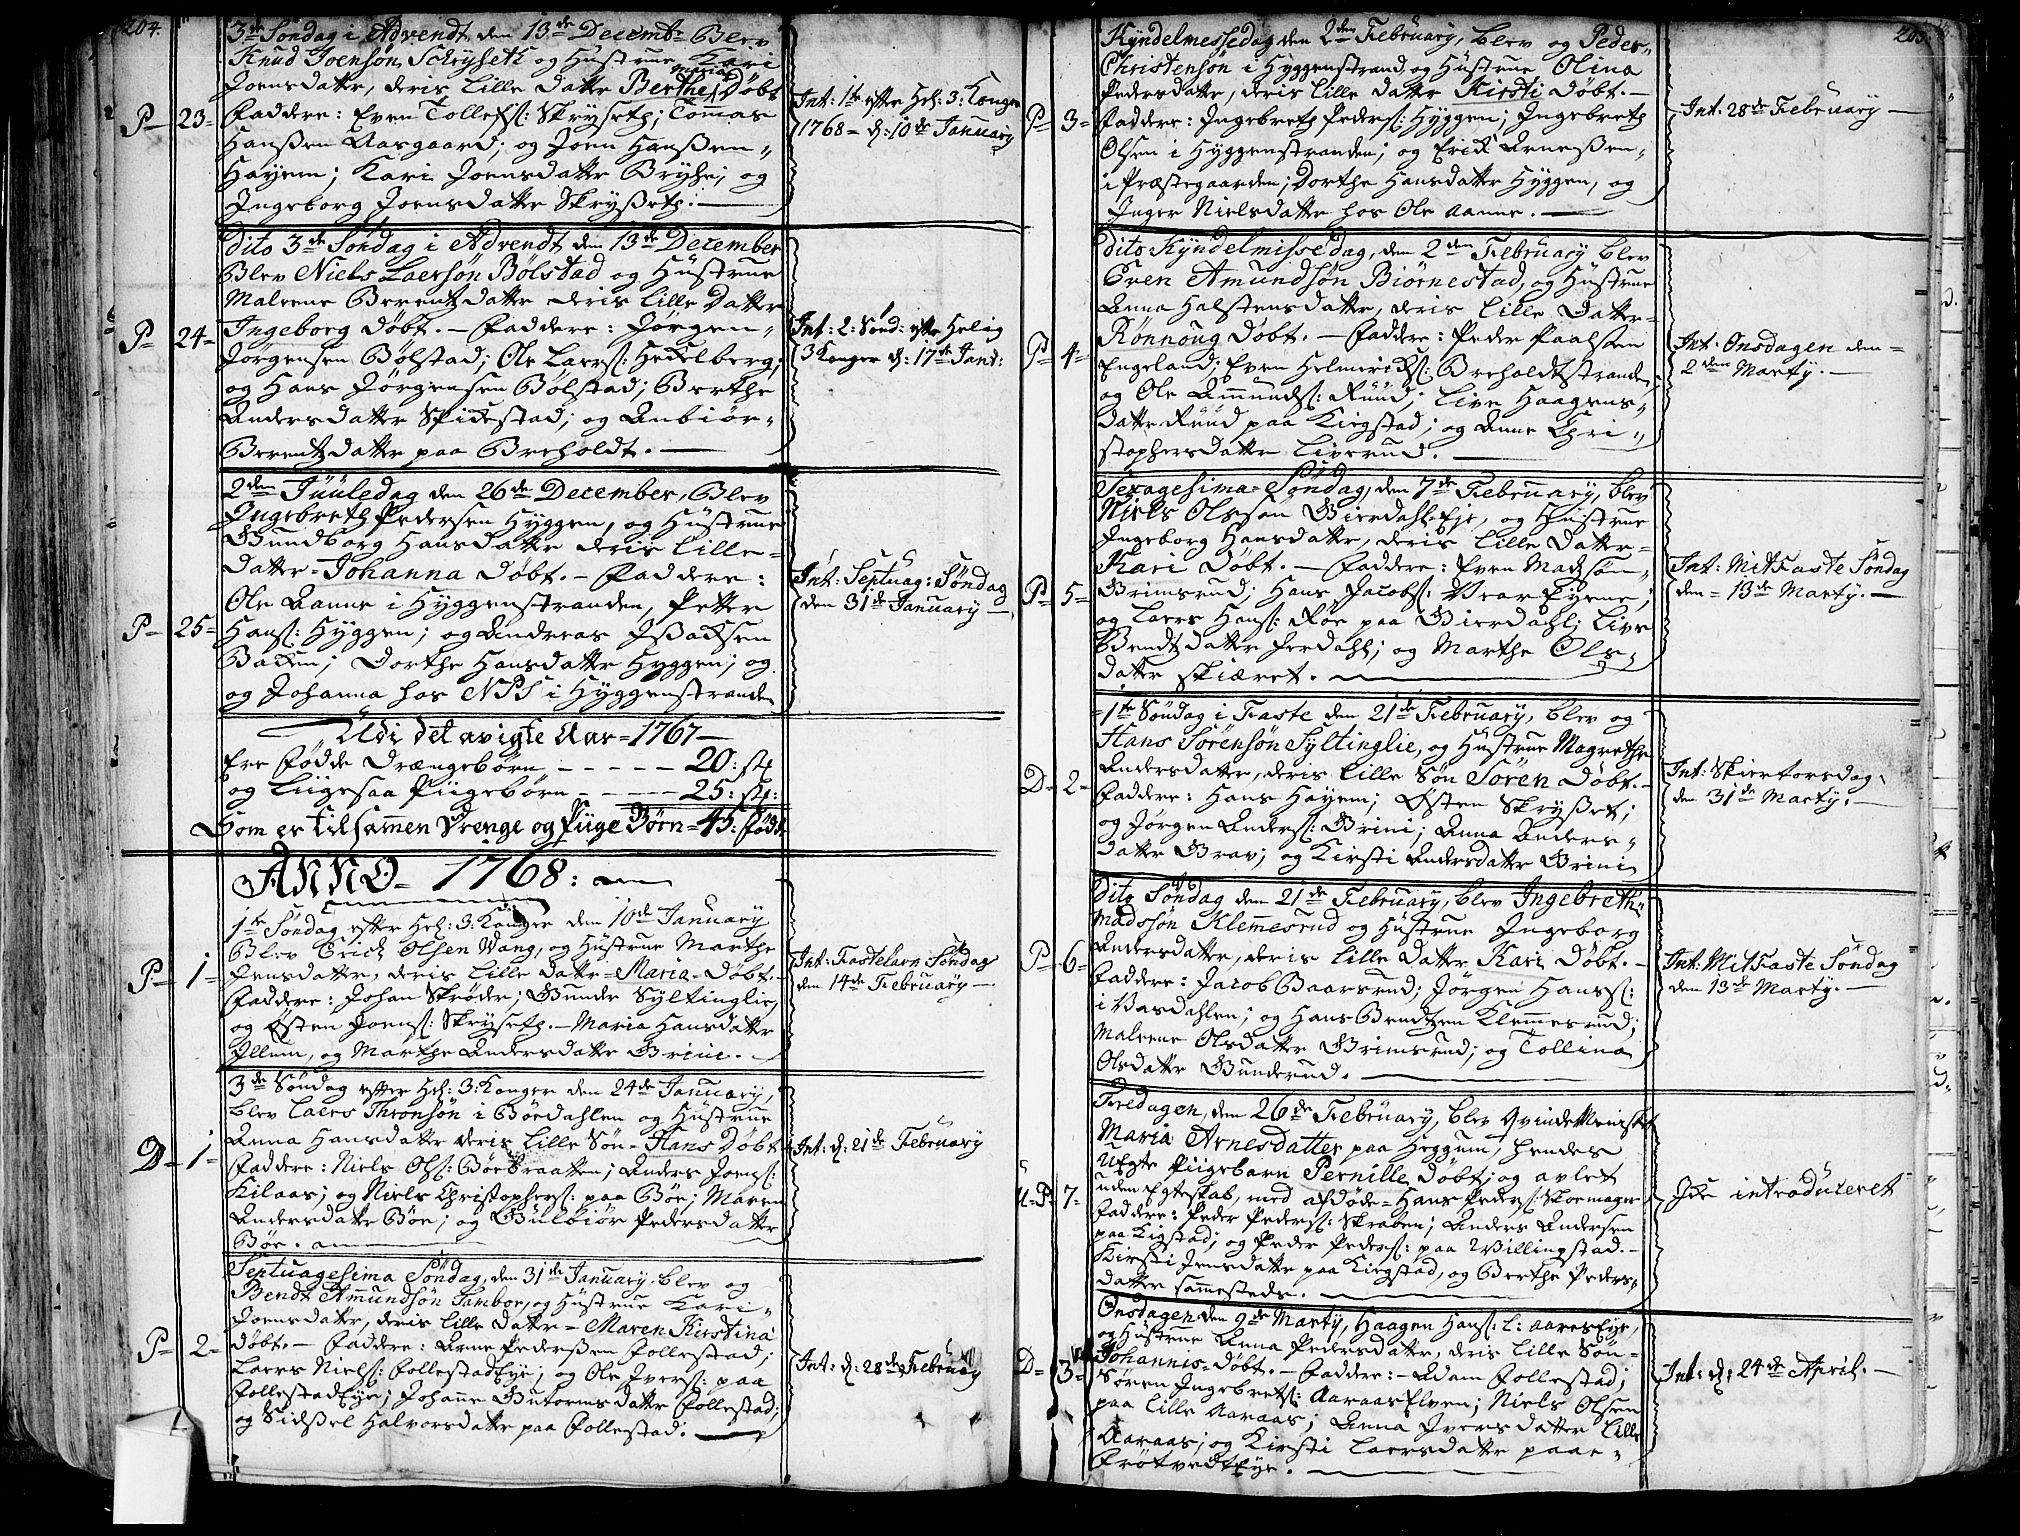 204.
3de Søndag i Advendt den 13de Decembr Blev
Knud Joensøn Schryseth og Hustrue Kari
Joensdatter, deris Lille Datter Berthe Maria Døbt
P 23 Faddere: Even Tollefs: Skrÿseth; Tomas
Hanßen Aasgaard; og Joen Hanßen
Hayem; Kari Joensdatter Bryhe; og
Ingeborg Joensdatter Skrÿßeth.
Int: 1te efter Hel: 3: Konger
1768 d: 10de Januarÿ
Dito 3de Søndag i Advendt den 13de December
Blev Niels Laersøn Bølstad og Hustrue
Maleene Berentzdatter deris Lille Datter
P 24 Ingeborg Døbt. Faddere: Jørgen
Jørgensen Bølstad; Ole Laers: Heckelberg;
og Hans Jørgensen Bølstad; Berthe
Andersdatter Spidestad; og Anbiør
Berentzdatter paa Breholdt.
Int: 2: Sønd: efter Helig
3 Konger d: 17de Janr:
2den Juuledag den 26de December, Blev
Ingebreth Pedersen Hyggen, og Hustrue
Gundborg Hansdatter deris Lille
Datter Johanna Døbt. Faddere:
Ole Aanne i Hyggenstranden, Petter
P 25 Hans: Hyggen; og Andreas Isacksen
Backen; Dorthe Hansdatter Hyggen; og
og Johanna hos NPS i Hyggenstranden
Int: Septuag: Søndag
den 31de Januarÿ
Udi det avigte Aar 1767
Ere fødde Drængebørn 20: st:
og Liigesaa Piigebørn 25: st:
Som er tilsamen Drenge og Piige Børn 45: født
ANNO 1768:
1te Søndag efter Hel: 3: Konger den 10de Januarÿ
Blev Erich Olsen Wang, og Hustrue Marthe
Jensdatter, deris Lille Datr Maria Døbt.
P 1 Faddere: Johan Skrøder; Gunder Syltinglie,
og Østen Joens: Skrÿseth. Maria Hansdatter
Illum, og Marthe Andersdatter Brini.
Int: Fastelavn Søndag
den 14de Februarÿ
3de Søndag efter Hel: 3: Konger den 24de Januarÿ,
blev Laers Thronsøn i Børdahlen og Hustrue
Anna Hansdatter deris Lille Søn Hans Døbt
D 1 Faddere: Niels Ols: Børbraatten; Anders Joens:
Kilaas; og Niels Christophers: paa Bør; Maren
Andersdatter Bør; og Gulbiør Pedersdatter
Bør.
Int: d: 21de Februarÿ
Septuagesima Søndag, den 31de Januarÿ, blev og
Bendt Amundsøn Tambor, og Hustrue Kari
Joensdatter, deris Lille Datter Maren Kirstina
P 2 døbt. Faddere: Arne Pederßen Follestad;
Laers Niels: FollestadEye; og Ole Ivers: paa
FollestadEye; Johanne Gutormsdatter Follestad;
og Sidsel Halvorsdatter paa Follestad.
Int: d: 28de Februarÿ
205.
Kyndelmessedag den 2den Februarÿ, blev og Peder
Christensøn i Hyggenstrand og Hustrue Olina
Pedersdatter, deris Lille Datter Kirsti Døbt.
P 3 Faddere: Ingebreth Peders: Hyggen; Ingebreth
Olsen i Hyggenstranden; og Erick Arneßen
i Præstegaarden; Dorthe Hansdatter Hyggen, og
Inger Nielsdatter hos Ole Aanne.
Int: 28de Februarÿ
Dito Kyndelmissedag, den 2den Februarÿ blev
Even Amundsøn Biørnestad, og Hustrue
Anna Halstensdatter, deris Lille Datter
Rønnoug Døbt. Faddere: Peder Paalsen
P 4 Engeland; Even Helmerichs: Breholdtstranden
og Ole Amunds: Ruud; Live Haagens
datter Ruud paa Kirgstad; og Anne Chri
stophersdatter Liverud.
Int: Onsdagen den
2den Martÿ.
Sexagesima Søndag, den 7de Februarÿ, blev
Niels Olsøn GierdahlsEje, og Hustrue
Ingeborg Hansdatter, deris Lille Datter
Kari Døbt. Faddere: Even Madsøn
P 5 Grimsrud; Hans Jacobs: Vear Eyene;
og Laers Hans: Røe paa Gierdahl; Live
Bendtzdatter Jerdahl; og Marthe Ols
datter Skiæret.
Int: MitFaste Søndag
den 13de Martÿ.
1te Søndag i Faste den 21de Februarÿ, blev og
Hans Sørensøn Syltinglie, og Hustrue Magrethe
Andersdatter, deris Lille Søn Søren Døbt.
D 2 Faddere: Hans Hayem; Østen Skrÿßet;
og Jørgen Anders: Brini; Anna Anders
datter Brav; og Kirsti Andersdatter Brini
Int: Skiertorsdag
den 31de Martÿ.
Dito Søndag den 21de Februarÿ, blev Ingebreth
Madssøn Klemesrud og Hustrue Ingeborg
Andersdatter, deris Lille Datter Kari Døbt.
P 6 Faddere: Jacob Baarsrud; Jørgen Hans:
i Vasdahlen; og Hans Bendtzen Klemmesrud;
Maleene Olsdatter Grimsrud; og Tollina
Olsdatter Gunderud.
Int: MitFaste Søndag
den 13de Martÿ.
Fredagen, den 26de Februarÿ, blev QvindeMenisket
Maria Arnesdatter paa Heggum, hendes
Uegte Piigebarn Pernille Døbt; og avlet
U-P 7 uden Egteskab, med afdøde Hans Peders: Skoemager
Faddere: Peder Peders: Skraben; Anders Andersen
paa Kigstad; og Peder Peders: paa Villingstad.
Kirsti Jensdatter paa Kirgstad, og Berthe Peders
datter sammesteds.
Icke introduceret
Onsdagen den 9de Martÿ, Haagen Hans: L: AaresEye,
og Hustrue Anna Pedersdatter, deris Lille Søn
D 3 Johannis døbt. Faddere: Adam Follestad;
Søren Ingebrets: AaraasElven; Niels Olsen
paa Lille Aaraas; Anna Iversdatter Lille
Aaraas; og Kirsti Laersdatter paa
FrøtvedtEye.
Int: d: 24de April.